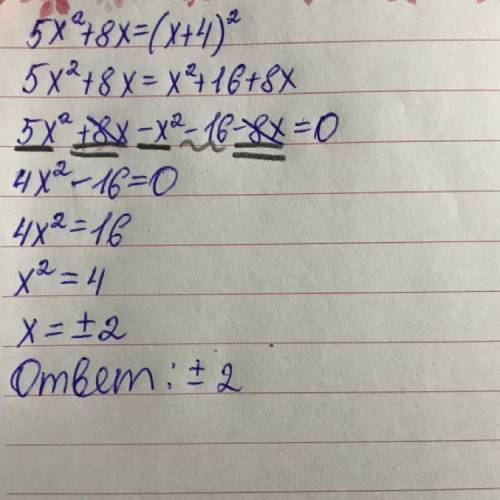 5x²+8x=(x+4)²
5x²+8x=x²+16+8x
5x²+8x-x²-16-8x=0
4x²-16=0
4x²=16
x²=4
x=±2
Ответ: ±2